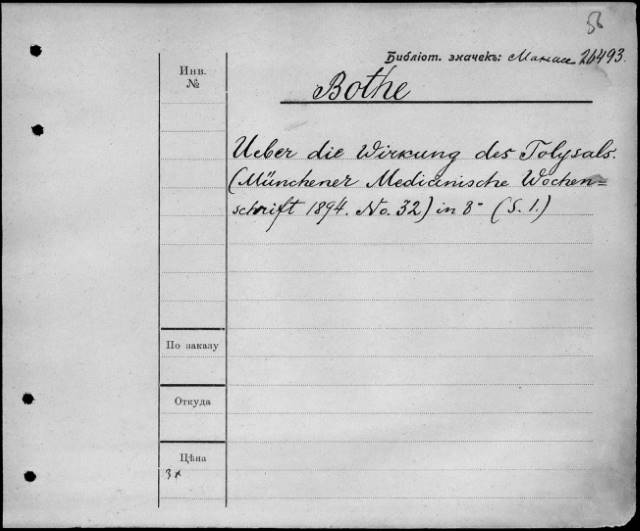 56
Библіот. значекъ: 26493.
Инв.
№
Bothe
Ueber die Wirkung des Tolysals.
(Münchener Medicinische Wochen=
schrift 1894. No. 32) in 8° (S. 1.)
По заказу
Откуда
Цѣна